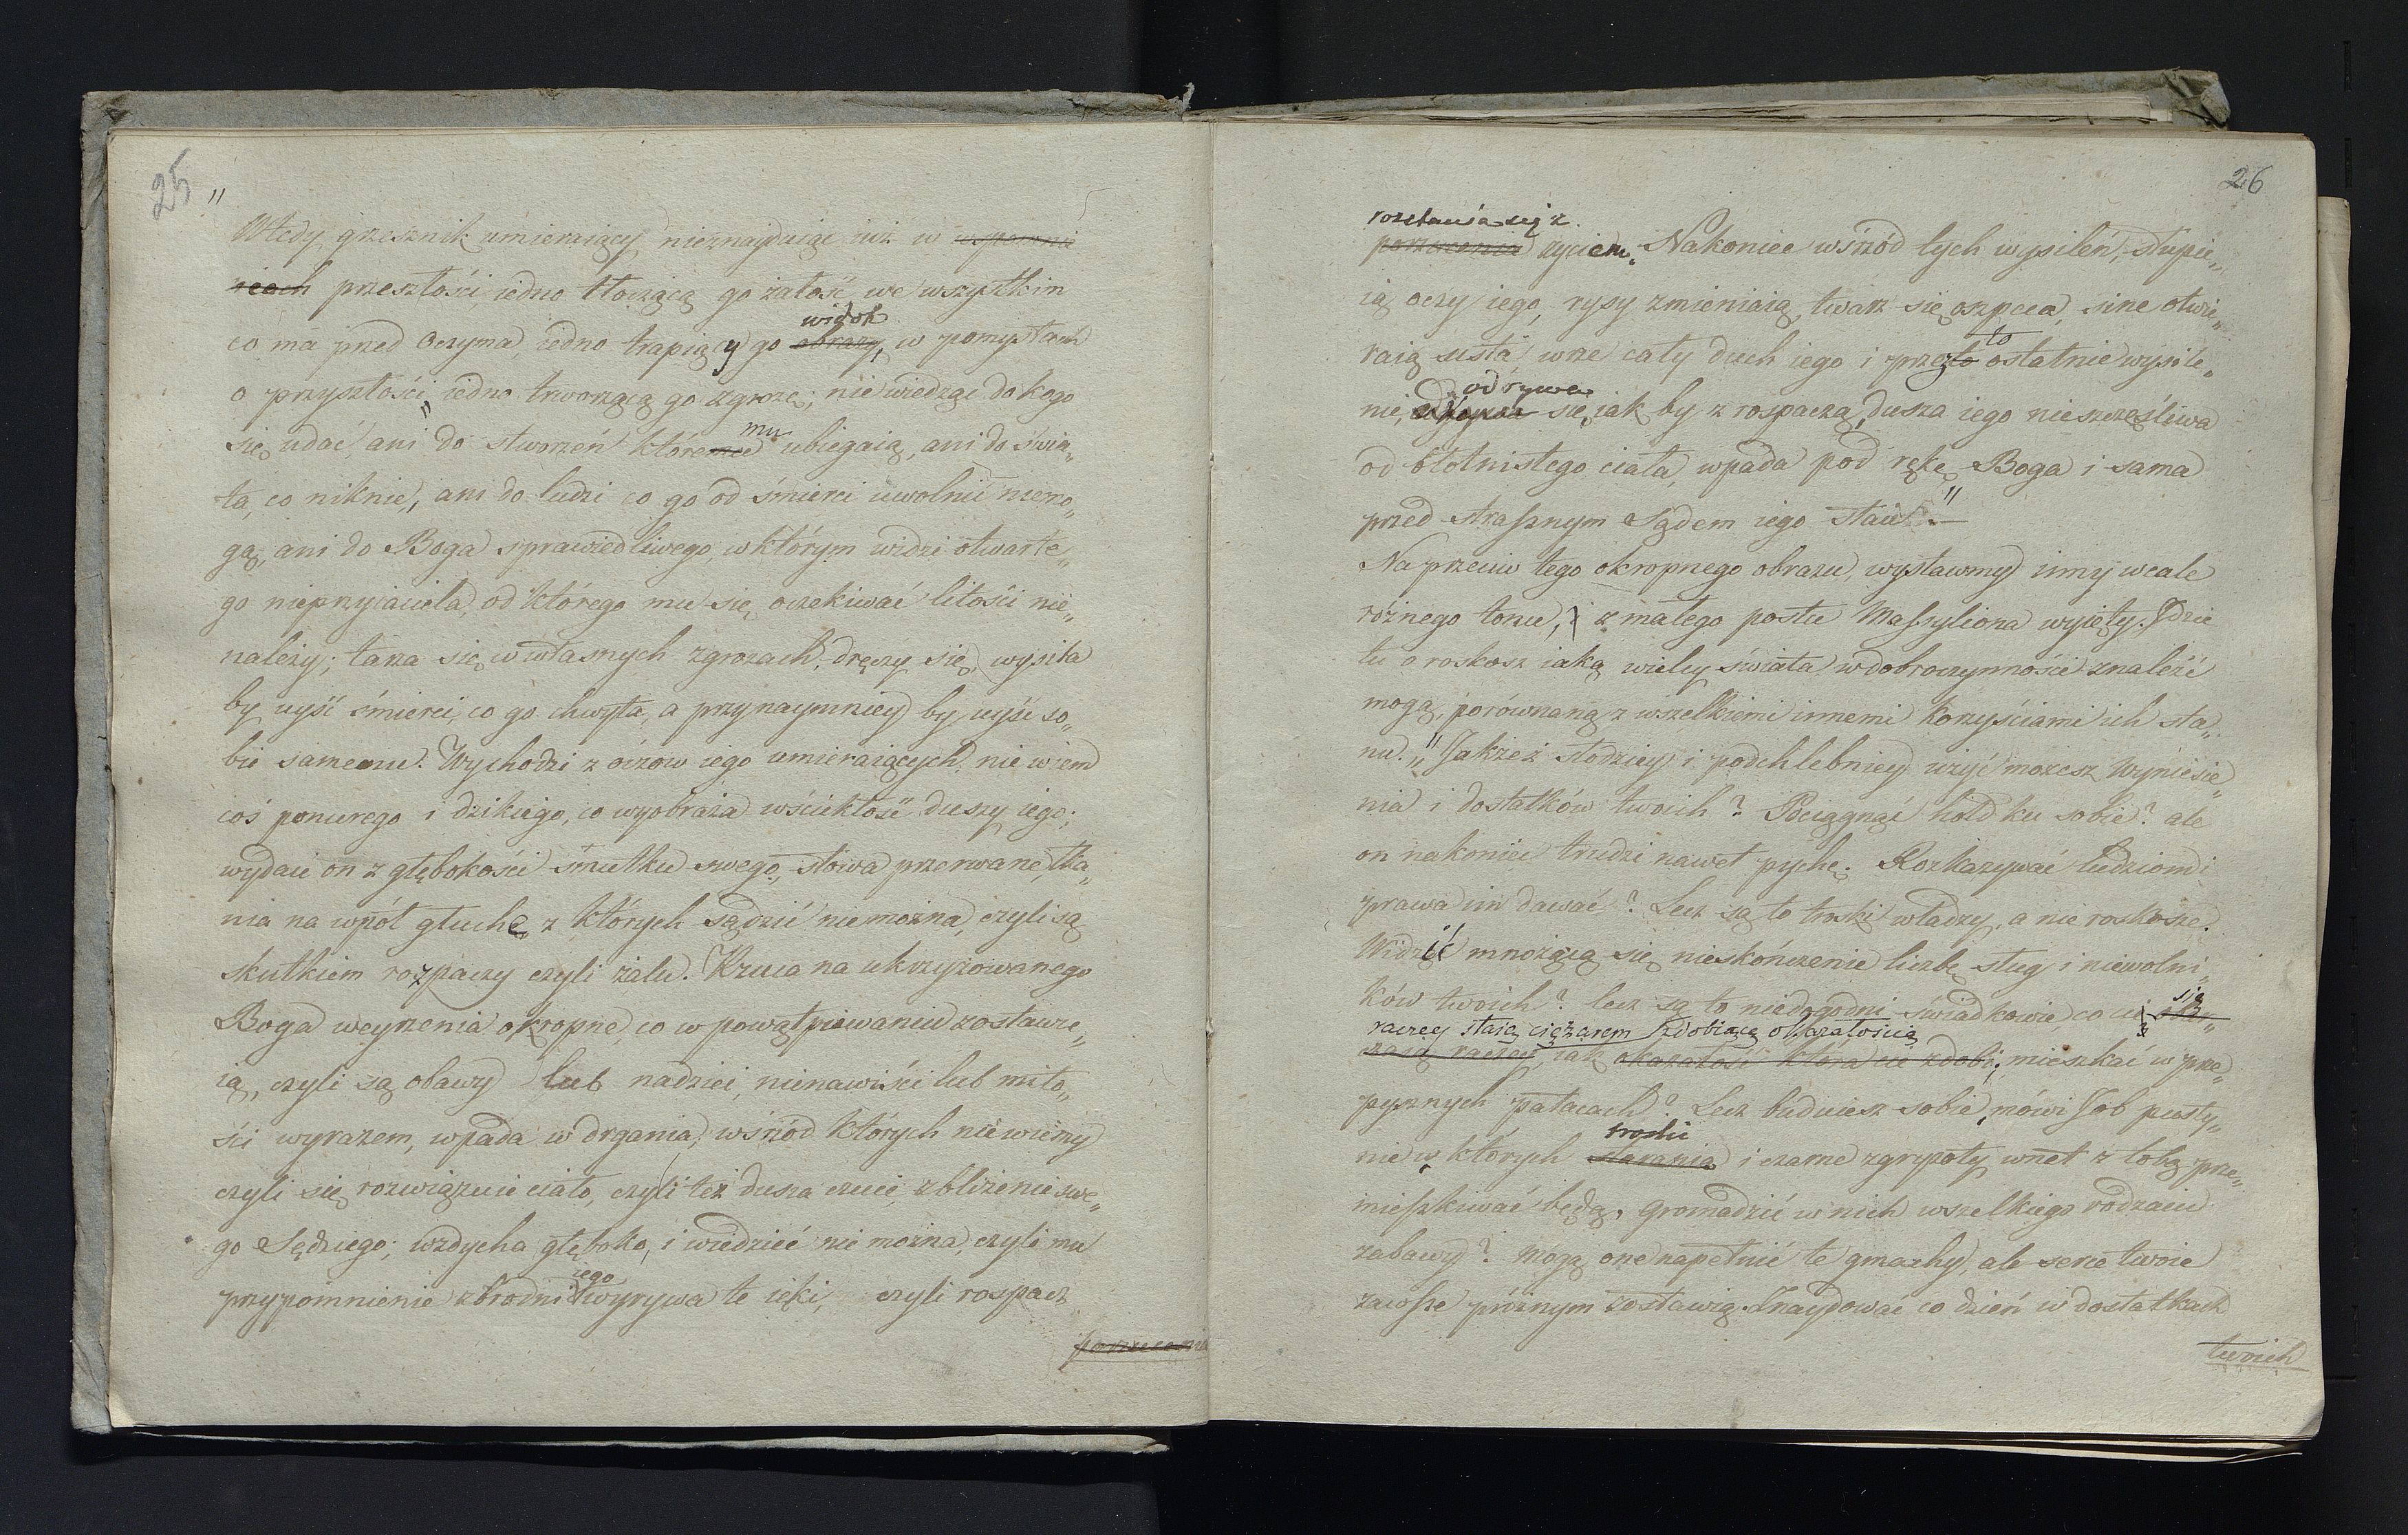 25
"
Wtedy grzesznik umieraiący nieznayduiąc iuż w wspomnie
niach przeszłości iedno tłoczącą go żałość we wszystkim
widok
co ma przed oczyma, iedno trapiący go obrazy, w pomysłach
o przyszłości, iedno trworzącą go zgrozę; nie wiedząc do kogo
mu
się udać, ani do stworzeń które ubiegaią, ani do świa„
ta, co niknie, ani do ludzi co go od śmierci uwolnić niemo„
gą, ani do Boga sprawiedliwego, w którym widzi otwarte„
go nieprzyiaciela, od którego mu się oczekiwać litości nie„
należy; tarza się w własnych zgrozach, dręczy się, wysila
by uyść śmierci, co go chwyta, a przynaymniey by uyść so„
bie samemu. Wychodzi z oczow iego umieraiących nie wiem
coś ponurego i dzikiego, co wyobraża wściekłość duszy iego;
wydaie on z głębokości smutku swego, słowa przerwane, łka„
nia na wpół głuche, z których sądzić nie można, czyli są
skutkiem rozpaczy czyli żalu. Rzuca na ukrzyżowanego
Boga weyrzenia okropne, co w powątpiewaniu zostawu„
ią, czyli są obawy lub nadziei, nienawiści lub miło„
ści wyrazem, wpada w drgania, wśrzód których nie wiemy
czyli się rozwiązuie ciało, czyli też dusza czuie zbliżenie swe„
go Sędziego; wzdycha głęboko, i wiedzieć nie można, czyli mu
iego
przypomnienie zbrodni wyrywa te ięki, czyli rospacz
porzucenia
26
rozstania się z
porzucenia życiem. Nakoniec wśrzód tych wysileń, słupie„
ią oczy iego, rysy zmieniaią, twarz się oszpeca, sine otwie„
to
raią usta wrze cały duch iego i przez to ostatnie wysile„
odrywa
nie, się, iak by z rospaczą, dusza iego nieszczęśliwa
od błotnistego ciała, wpada pod rękę Boga i sama
przed strasznym Sądem iego staie."—
Naprzeciw tego okropnego obrazu, wystawmy inny wcale
różnego tonu, i z małego postu Massyliona wyięty. Idzie
tu o roskosz iaką wielcy świata w dobroczynności znaleźć
mogą, porównaną z wszelkiemi innemi korzyściami ich sta„
nu. „Jakżeż słodziey i podchlebniey użyć możesz wyniesie„
nia i dostatków twoich? Pociągnąć hołd ku sobie? ale
on nakoniec trudzi nawet pychę. Rozkazywać ludziom i
prawa im dawać? Lecz są to troski władzy, a nie roskosze.
Widzieć mnożącą się nieskończenie liczbę sług i niewolni„
ków twoich? lecz są to niedogodni świadkowie, co ci się
raczey staią ciężarem zdobiącą okazałością
raczey, iak okazałość która cię zdobi; mieszkać w prze„
pysznych pałacach? Lecz buduiesz sobie, mówi Job pusty„
troski
nie w których starania i czarne zgryzoty wnet z tobą prze„
mieszkiwać będą. gromadzić w nich wszelkiego rodzaiu
zabawy? mogą one napełnić te gmachy, ale serce twoie
zawsze próżnym zostawią. Znaydować co dzień w dostatkach
twoich